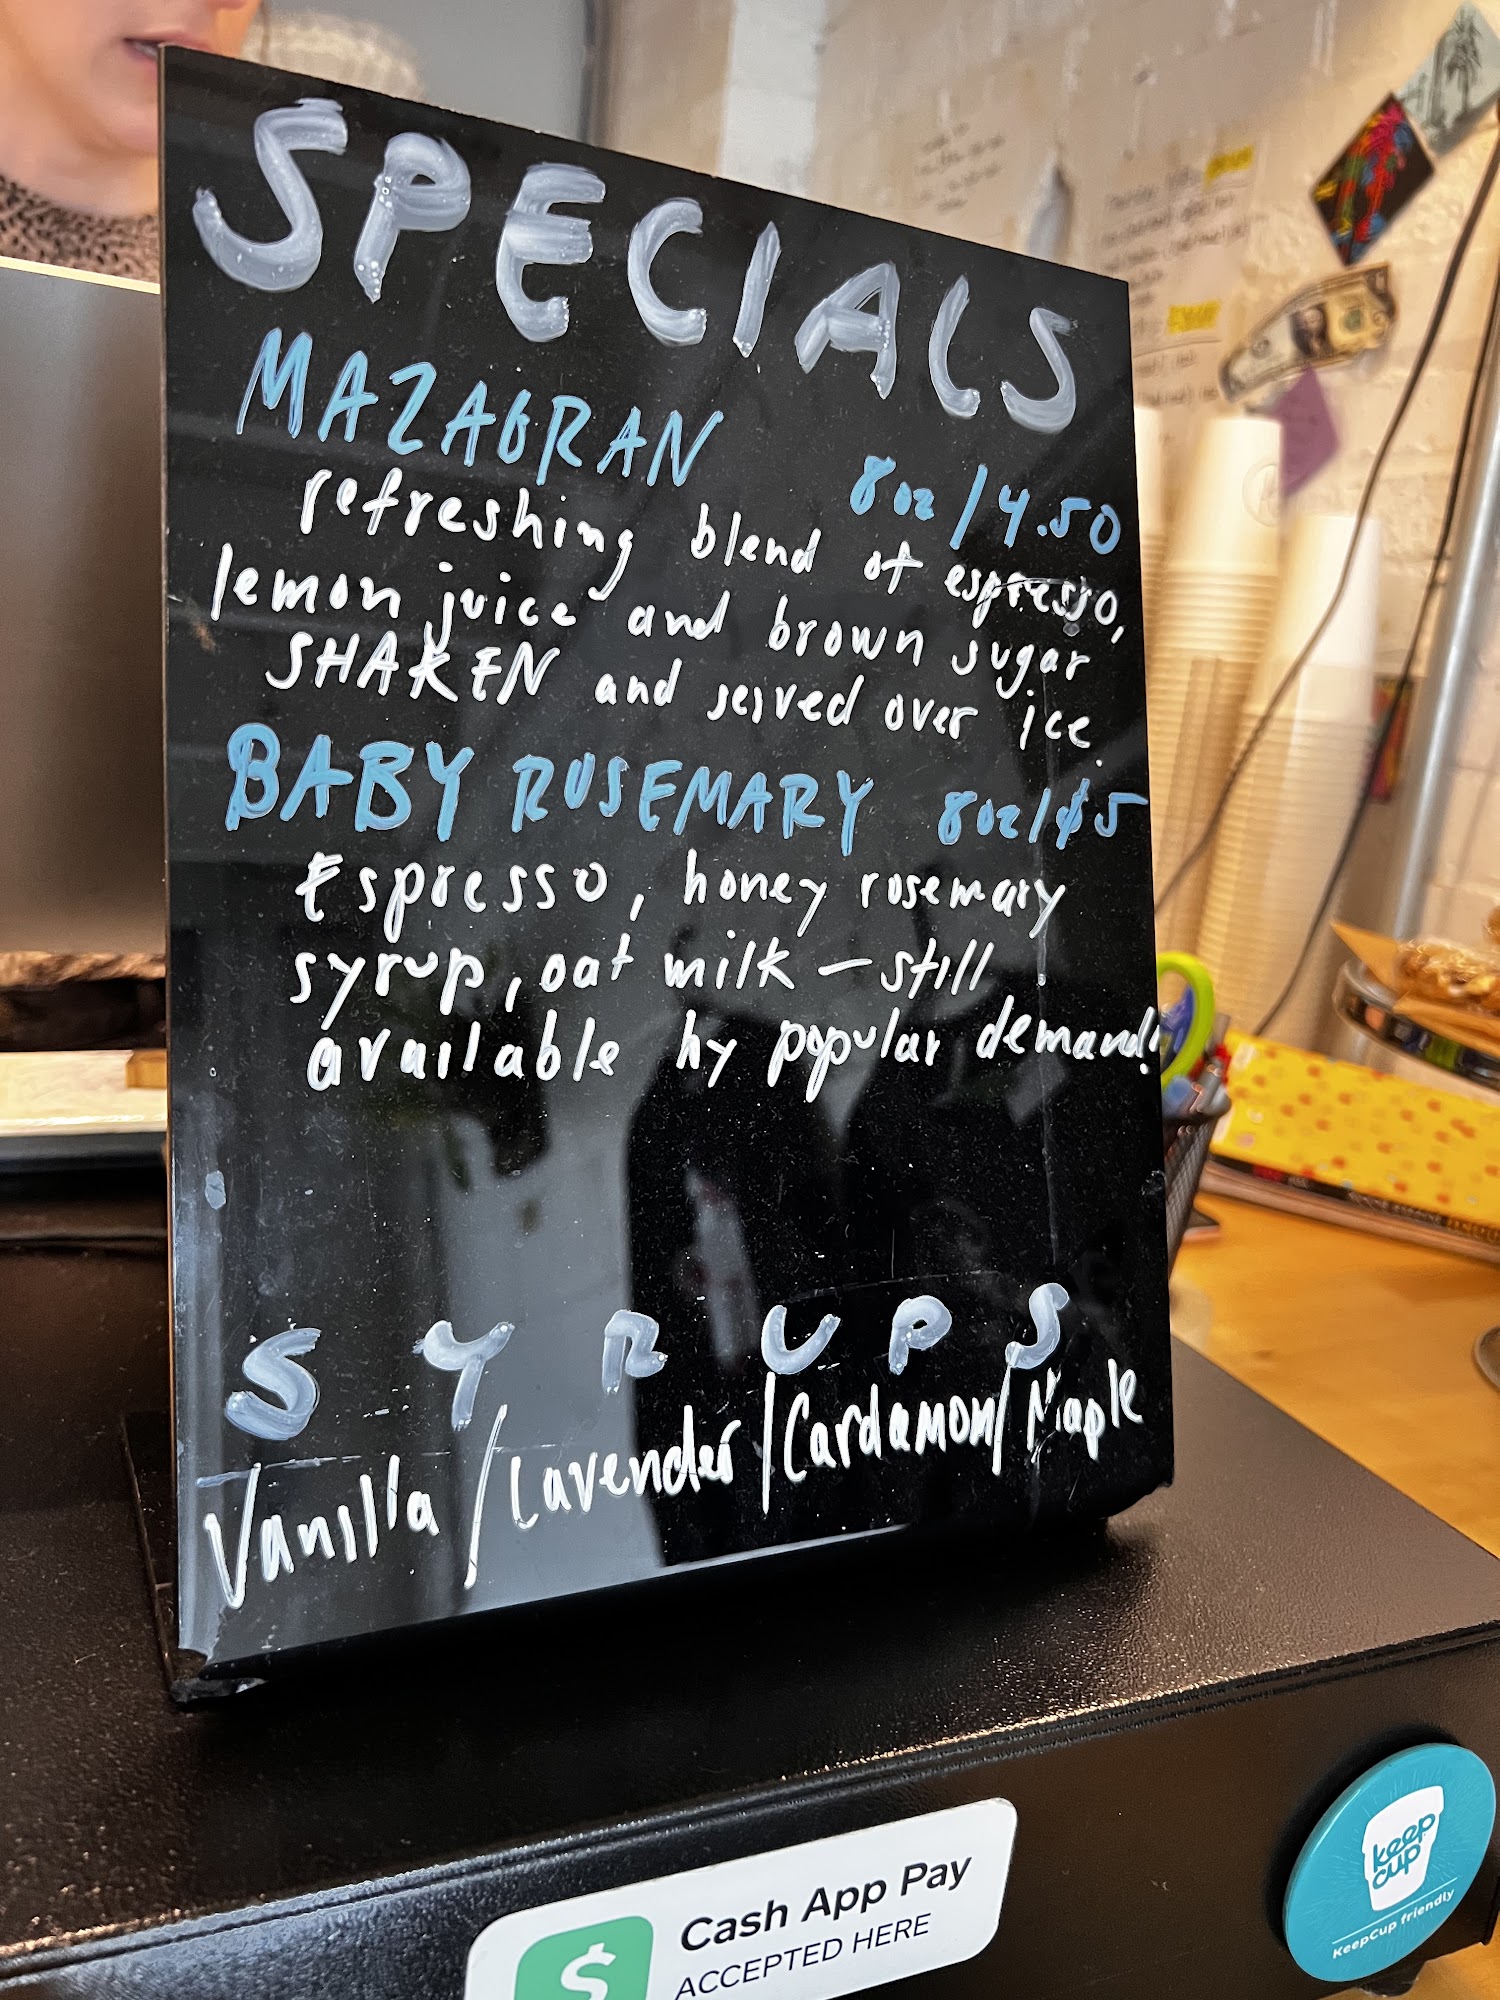 SPECIALS
MAZAGRAN
8oz/4.50
refreshing blend of espresso,
lemon juice and brown sugar
SHAKEN and served over ice.
BABY ROSEMARY 8oz/$5
Espresso, honey rosemary
syrup, oat milk - still
available by popular demand!
SYRUPS
Vanilla/Lavender/Cardamon/Maple
Cash App Pay
ACCEPTED HERE
$
keep
cup
KeepCup friendly